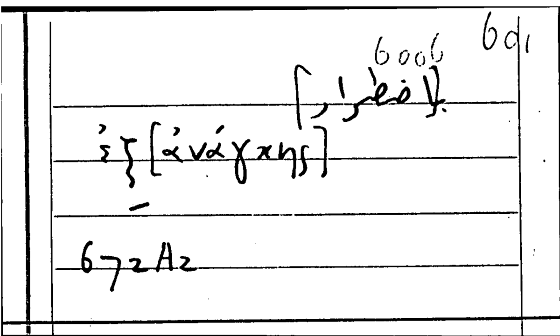 6006 601
[باضطرار]
ἐξ [ἀνάγκης]
672A2